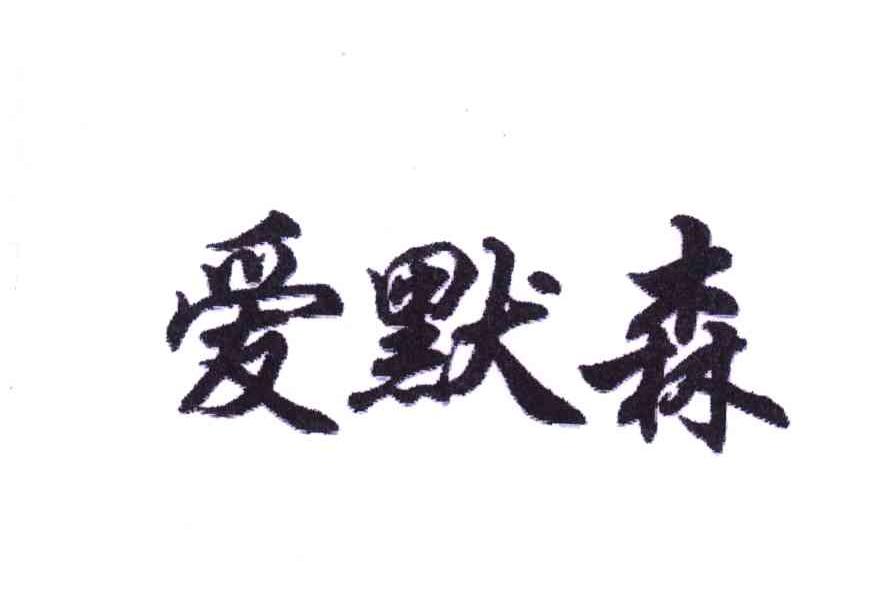 爱默森